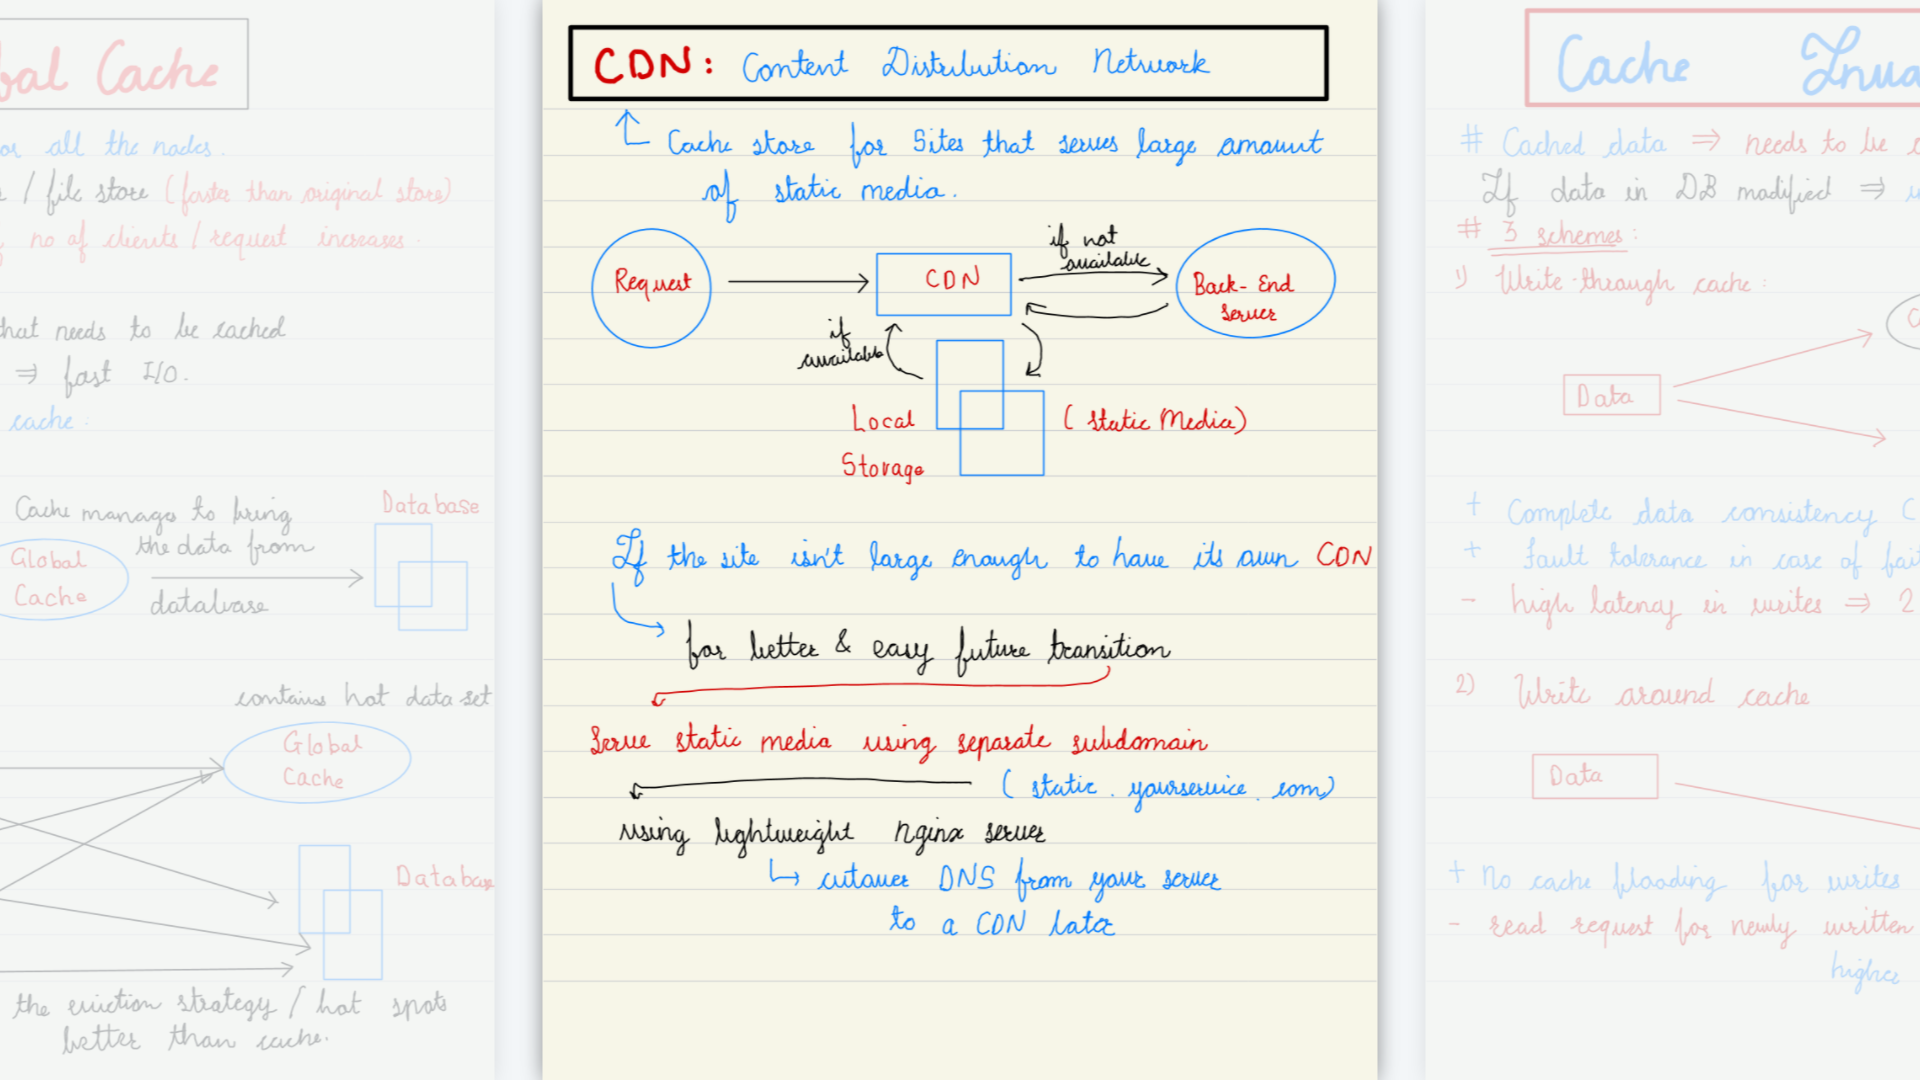 bal Cache
or all the nodes.
s / file store (faster than original store)
no of clients / request increases.
that needs to be cached
⇒ fast I/O.
cache.
Cache manages to bring
the data from
database
Database
Global
Cache
contains hot data set
Global
Cache
Database
the eviction strategy / hot spots
better than cache.
CDN: Content Distribution Network
Cache store for Sites that serves large amount
of static media.
Request
CDN
if not
available
Back-End
server
if
available
Local
Storage
(static Media)
If the site isn't large enough to have its own CDN
for better & easy future transition
Serve static media using separate subdomain
(static.yourservice.com)
using lightweight nginx server
↳ cutover DNS from your server
to a CDN later
Cache Inva
# Cached data ⇒ needs to be
If data in DB modified ⇒
# 3 schemes:
1) Write-through cache:
Data
+ Complete data consistency (
+ Fault tolerance in case of fai
- high latency in writes ⇒ 2
2) Write around cache
Data
+ No cache flooding for writes
- read request for newly written
higher